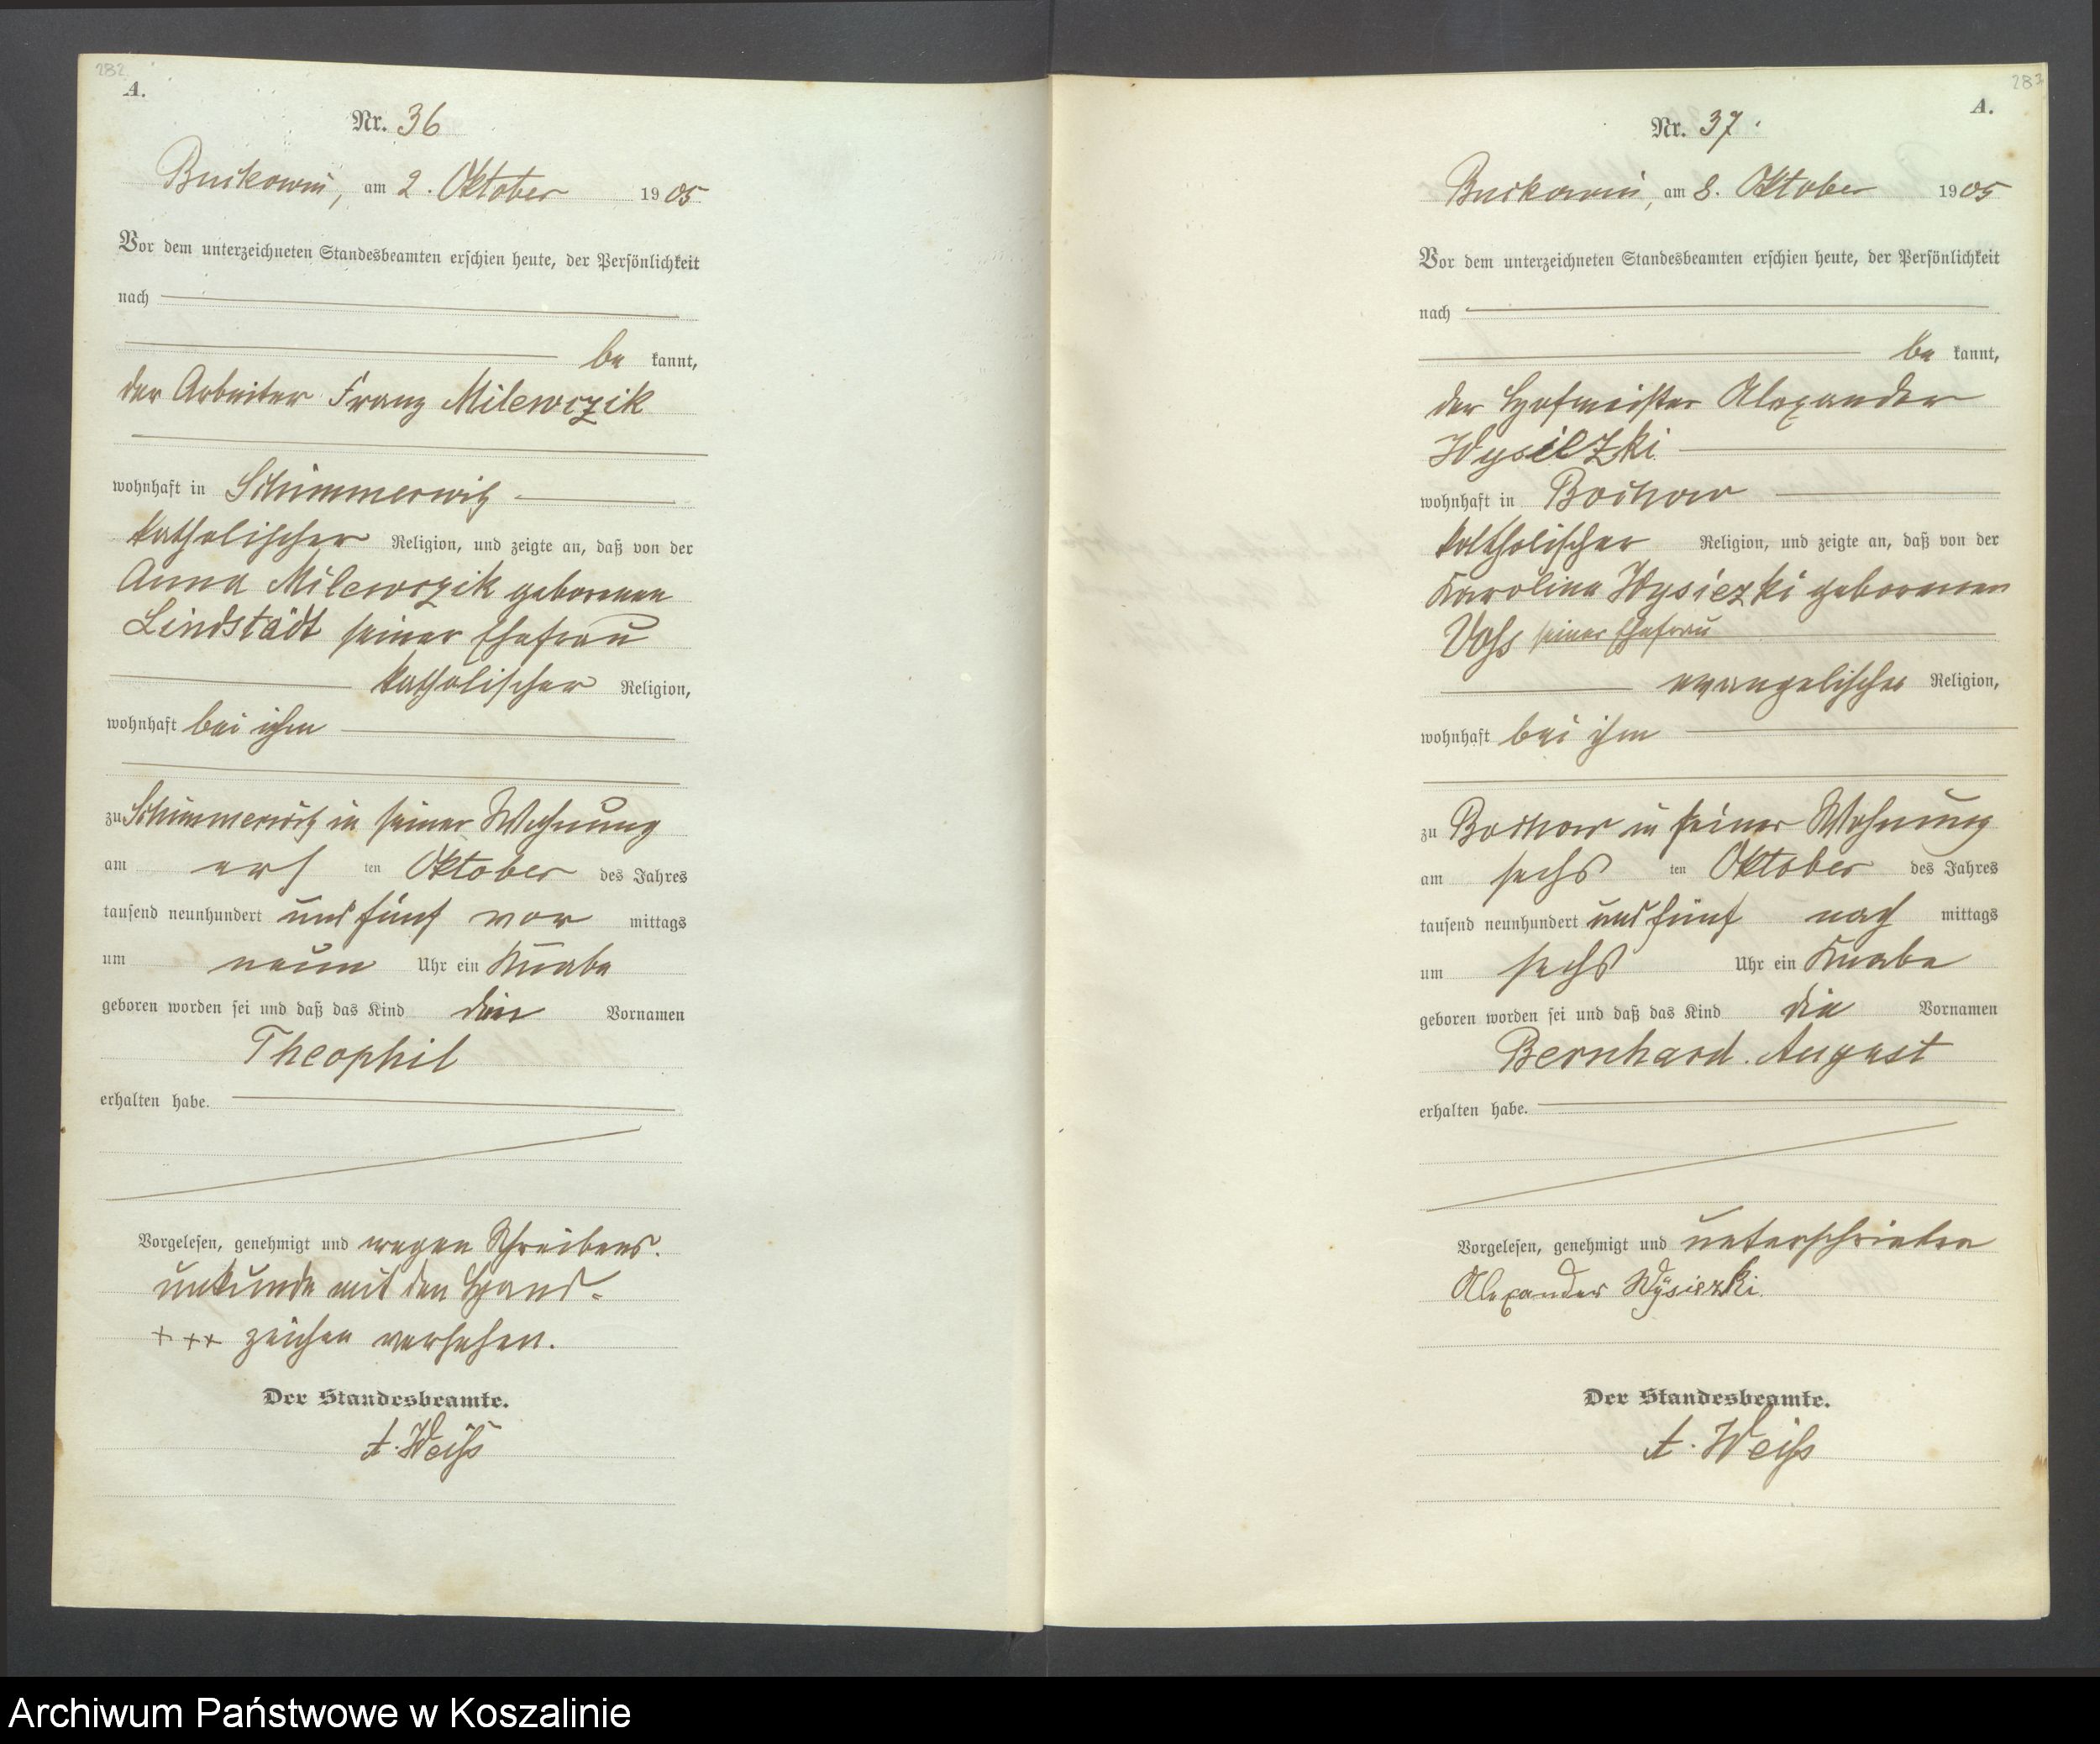 282
A.
Nr. 36
Buckowin, am 2. Oktober 1905
Vor dem unterzeichneten Standesbeamten erschien heute, der Persönlichkeit
nach
be kannt,
der Arbeiter Franz Milewczik
wohnhaft in Schimmerwitz
katholischer Religion, und zeigte an, daß von der
Anna Milewczik geborenen
Lindstädt seiner Ehefrau
katholischer Religion,
wohnhaft bei ihm
zu Schimmerwitz in seiner Wohnung
am ersten Oktober des Jahres
tausend neunhundert und fünf vor mittags
um neun Uhr ein Knabe
geboren worden sei und daß das Kind den Vornamen
Theophil
erhalten habe.
Vorgelesen, genehmigt und wegen Schreibens-
unkunde mit den Hand-
+++ zeichen versehen.
Der Standesbeamte.
A. Weiß
283
A.
Nr. 37.
Buckowin, am 8. Oktober 1905
Vor dem unterzeichneten Standesbeamten erschien heute, der Persönlichkeit
nach
be kannt,
der Hofmeister Alexander
Wysiezki
wohnhaft in Bochow
katholischer Religion, und zeigte an, daß von der
Karolina Wysiezki geborenen
Voß seiner Ehefrau
evangelischer Religion,
wohnhaft bei ihm
zu Bochow in seiner Wohnung
am sechsten Oktober des Jahres
tausend neunhundert und fünf nach mittags
um sechs Uhr ein Knabe
geboren worden sei und daß das Kind die Vornamen
Bernhard. August
erhalten habe.
Vorgelesen, genehmigt und unterschrieben
Alexander Wÿsiezki.
Der Standesbeamte.
A. Weiß
Archiwum Państwowe w Koszalinie